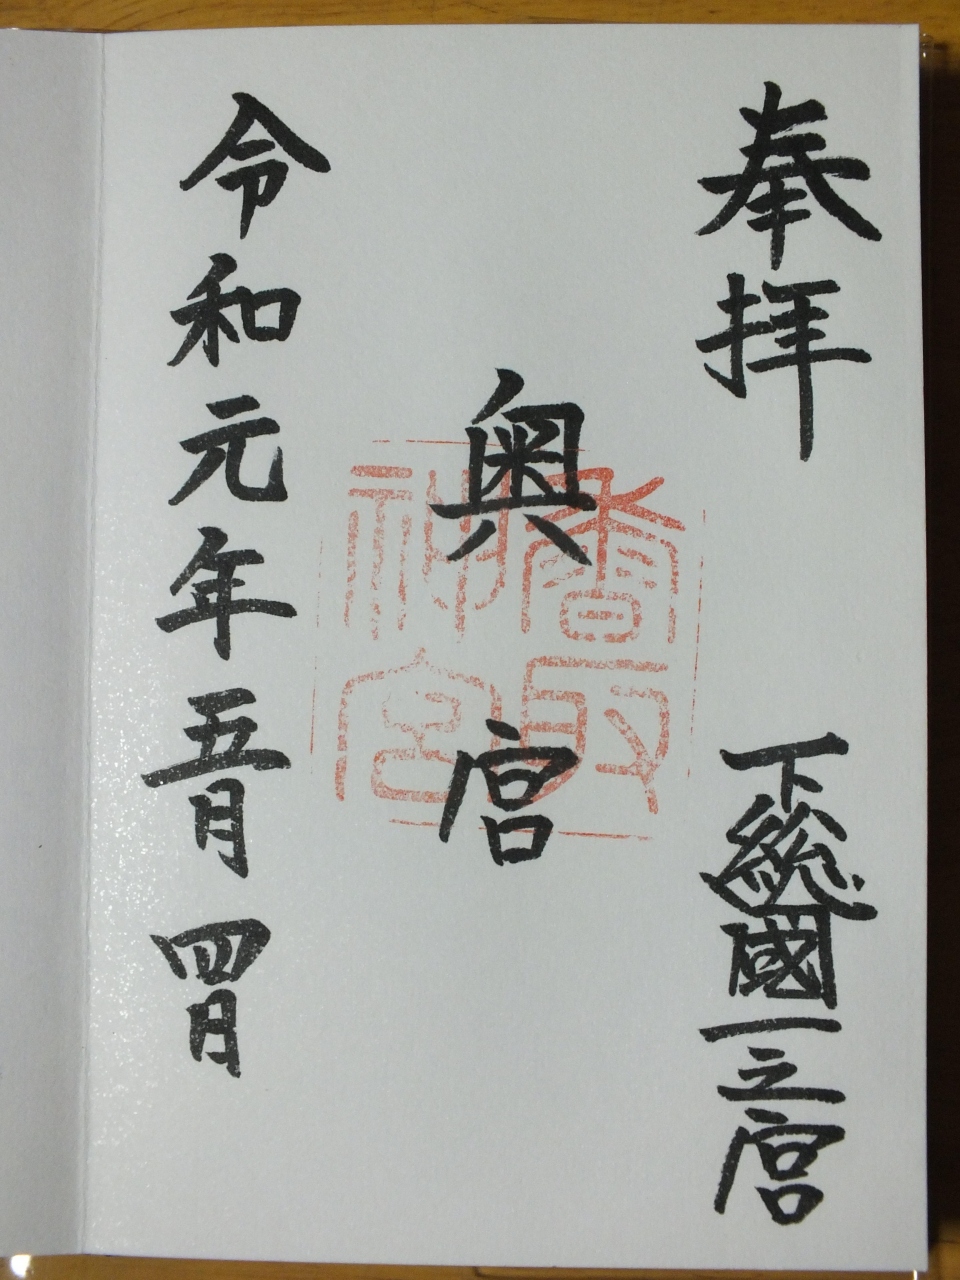 奉拝 下総國一之宮
奥宮
香取
神宮
令和元年五月四日